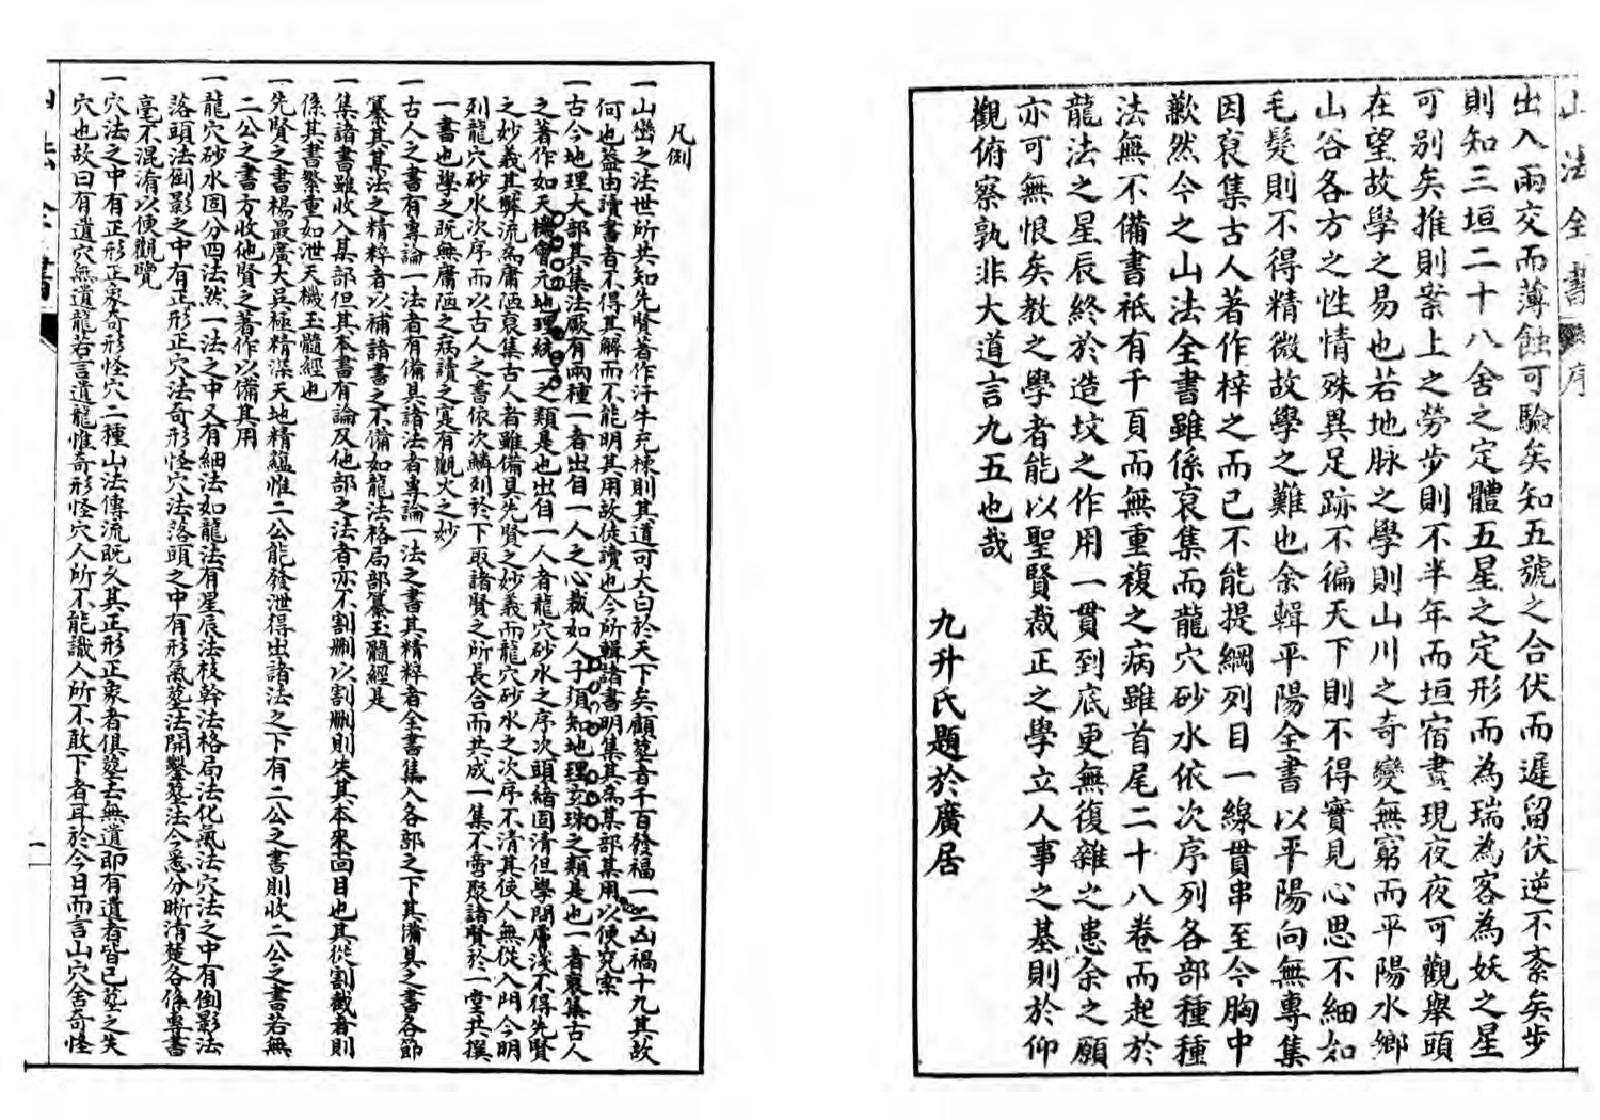 山法全書 序
出入兩交而薄蝕可驗矣知五號之合伏而遲留伏逆不紊矣步
則知三垣二十八舍之定體五星之定形而為瑞為客為妖之星
可別矣推則案上之勞步則不半年而垣宿盡現夜夜可觀舉頭
在望故學之易也若地脉之學則山川之奇變無窮而平陽水鄉
山谷各方之性情殊異足跡不徧天下則不得實見心思不細如
毛髮則不得精微故學之難也余輯平陽全書以平陽向無專集
因裒集古人著作梓之而已不能提綱列目一線貫串至今胸中
歉然今之山法全書雖係裒集而龍穴砂水依次序列各部種種
法無不備書祗有千頁而無重複之病雖首尾二十八卷而起於
龍法之星辰終於造坟之作用一貫到底更無復雜之患余之願
亦可無恨矣教之學者能以聖賢裁正之學立人事之基則於仰
觀俯察孰非大道言九五也哉
九升氏題於廣居
凡例
一山巒之法世所共知先賢著作汗牛充棟則其道可大白於天下矣顧塟者千百發福一二凶禍十九其故
何也葢由讀書者不得其解而不能明其用故徒讀也今所輯諸書明集其為某部某用以便究索
一古今地理大部其集法厥有兩種一者出自一人之心裁如人子須知地理玄珠之類是也一者裒集古人
之著作如天機會元地理統一之類是也出自一人者龍穴砂水之序次頭緒固清但學問膚淺不得先賢
之妙義其弊流為庸陋裒集古人者雖備具先賢之妙義而龍穴砂水之次序不清其使人無從入門今明
列龍穴砂水次序而以古人之書依次鱗列於下取諸賢之所長合而共成一集不啻聚諸賢於一堂共撰
一書也學之既無庸陋之病讀之定有觀火之妙
一古人之書有專論一法者有備具諸法者專論一法之書其精粹者全書集入各部之下其備具之書各節
纂其某法之精粹者以補諸書之不備如龍法格局部纂玉髓經是
一集諸書雖收入某部但其本書有論及他部之法者亦不割刪以割刪則失其本來面目也其從割裁者則
係其書繁重如泄天機玉髓經也
一先賢之書楊最廣大吳極精深天地精蘊惟二公能發泄得出諸法之下有二公之書則收二公之書若無
二公之書方收他賢之著作以備其用
一龍穴砂水固分四法然一法之中又有細法如龍法有星辰法枝幹法格局法化氣法穴法之中有倒影法
落頭法倒影之中有正形正穴法奇形怪穴法落頭之中有形氣塟法開鑿塟法今悉分晰清楚各係專書
毫不混淆以便觀覽
一穴法之中有正形正象奇形怪穴二種山法傳流既久其正形正象者俱塟去無遺即有遺者皆已塟之失
穴也故曰有遺穴無遺龍若言遺龍惟奇形怪穴人所不能識人所不敢下者耳於今日而言山穴舍奇怪
一